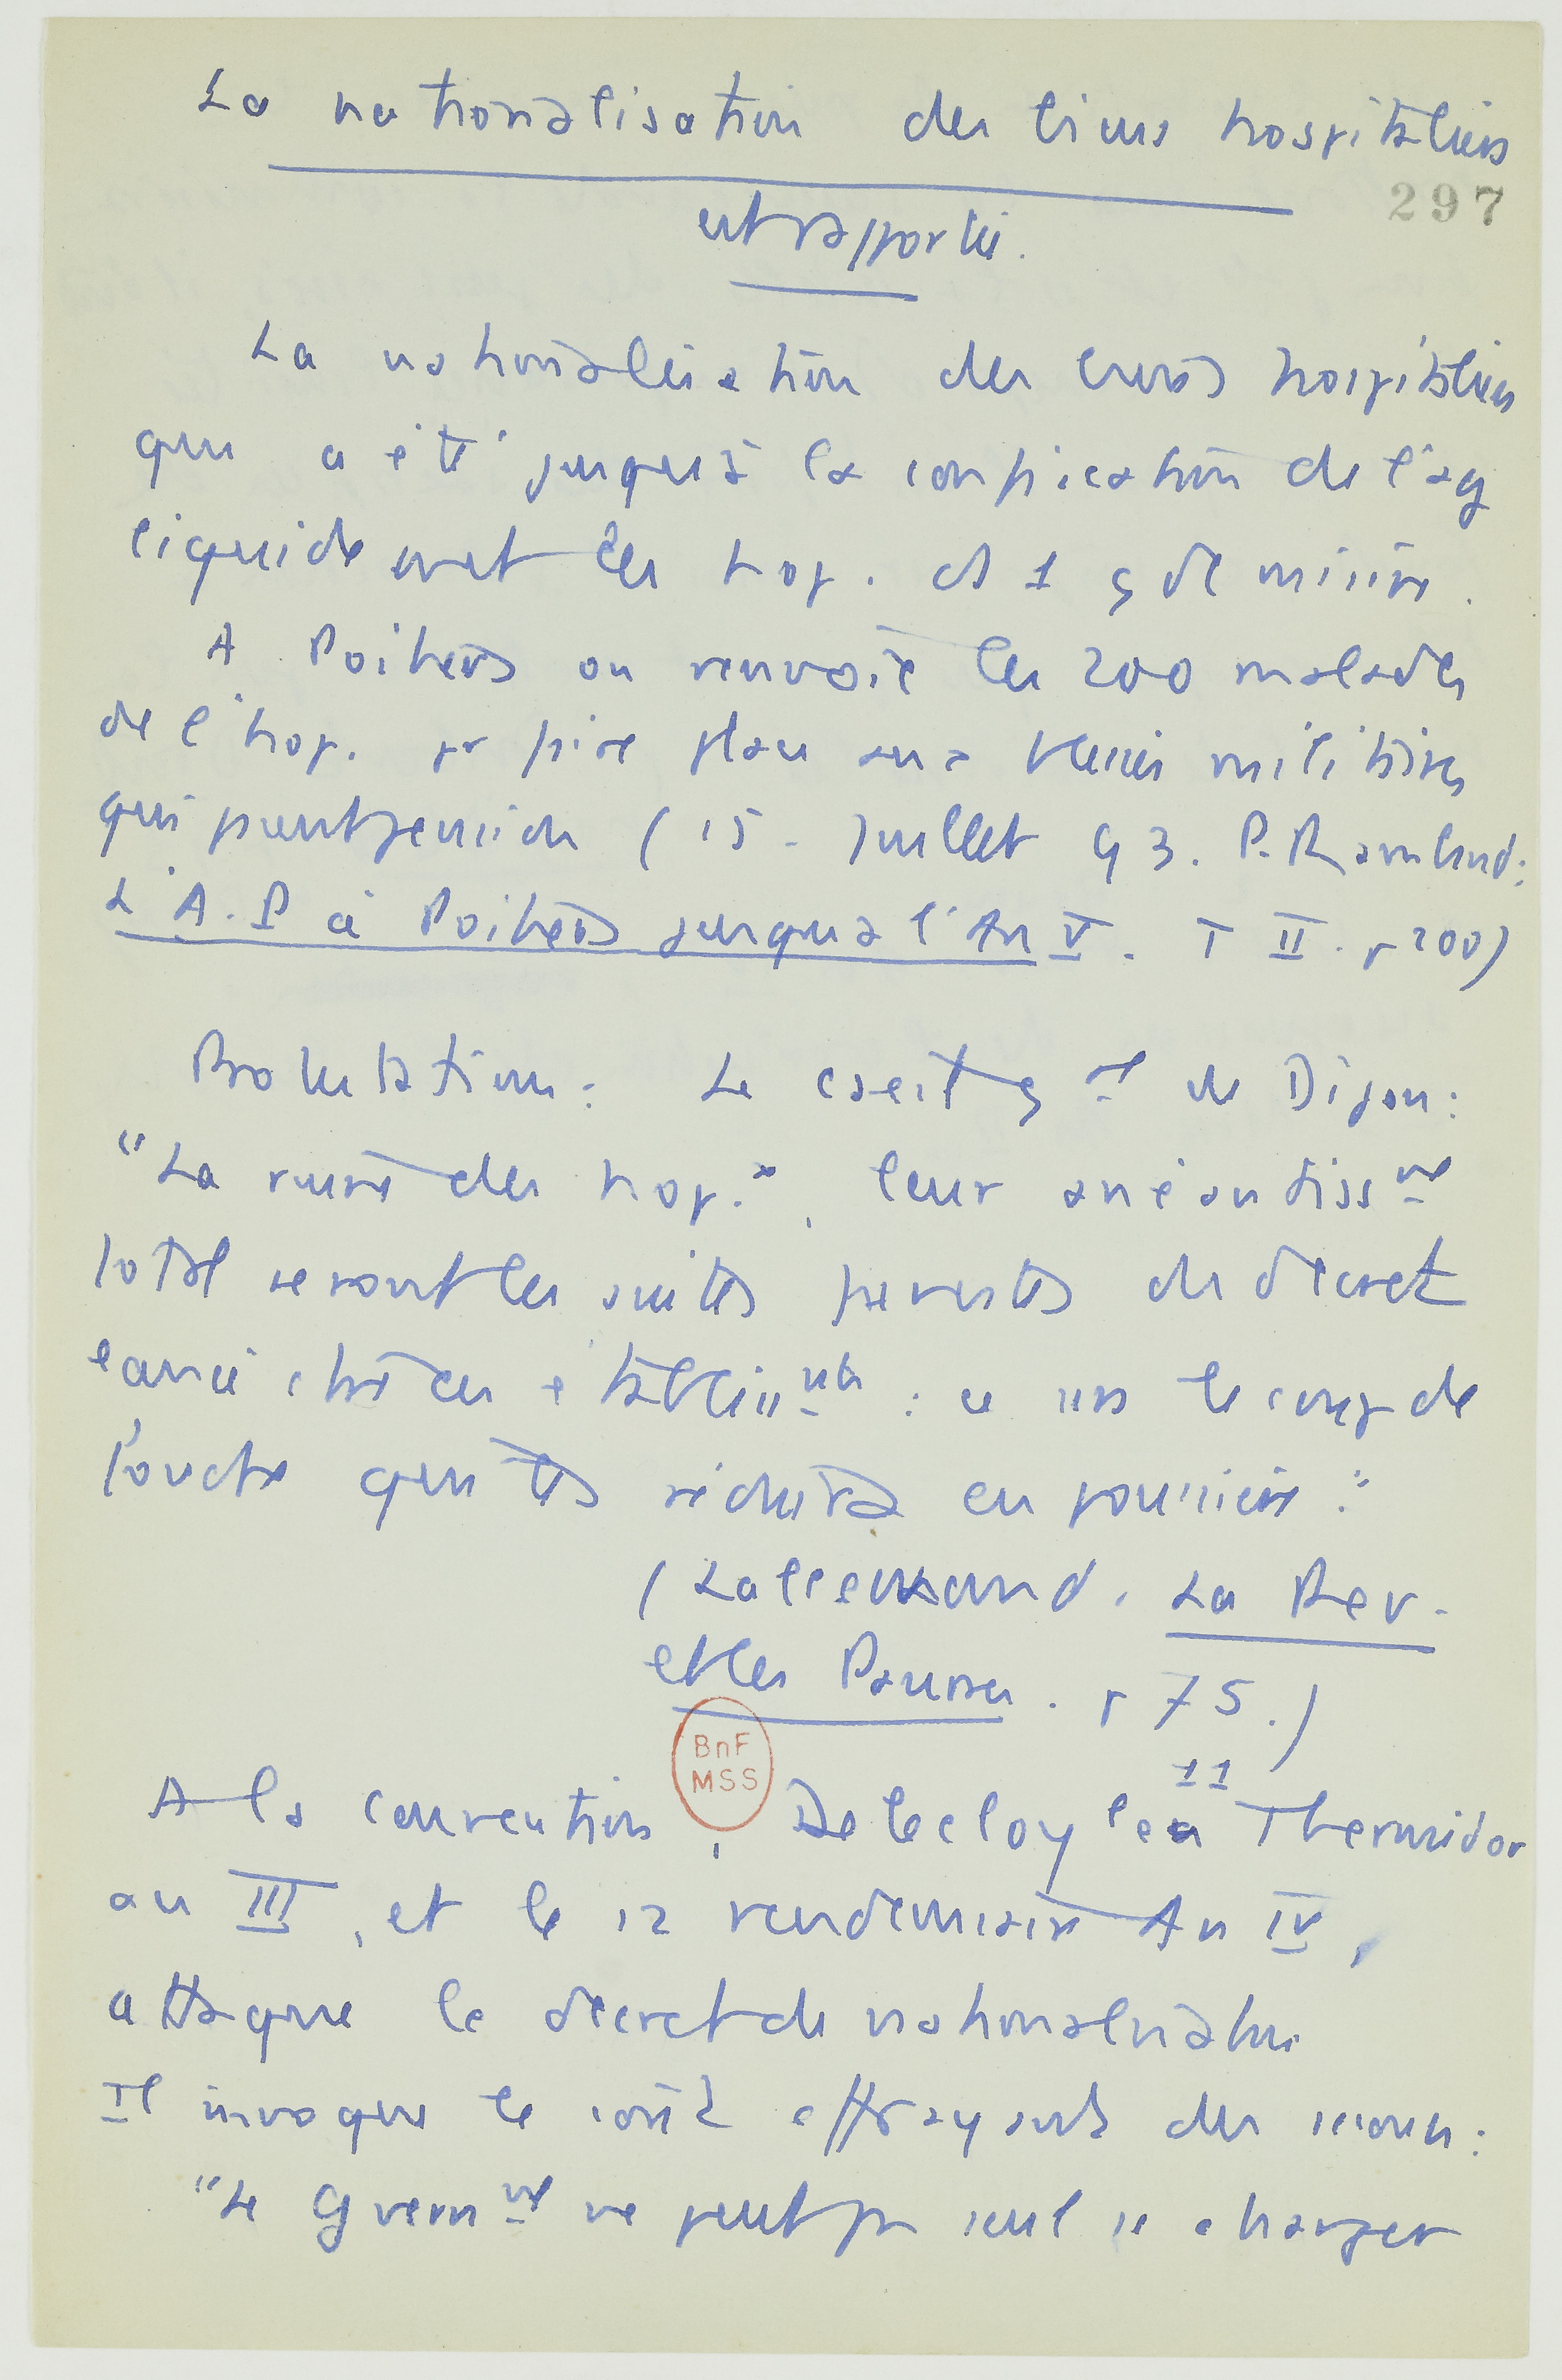 La nationalisation des biens hospitaliers
297
est rapportée.
La nationalisation des biens hospitaliers
qui a été jusqu'à la confiscation de l'arg
liquide met les hop. ds 1 gde misère.
A Poitiers on renvoie les 200 malades
de l'hop. pr faire place aux blessés militaires
qui paient pension (15 Juillet 93. P. Rambaud:
L'A.P à Poitiers jusqu'à l'An V. T II. p 200)
Protestation: Le conseil gal de Dijon:
"La ruine des hop., leur anéantissmt
total seront les suites funestes du décret
lancé contre ces établissmts : ce sera le coup de
foudre qui les réduira en poussière."
(Lallemand. La Rev.
et les Pauvres. p 75.)
A la convention, Delecloy le 11 Thermidor
an III, et le 12 vendémiaire An IV,
attaque le décret de nationalisation
Il invoque le coût effrayant des secours:
"Le Gvernmt ne peut pas seul se charger
BnF
MSS